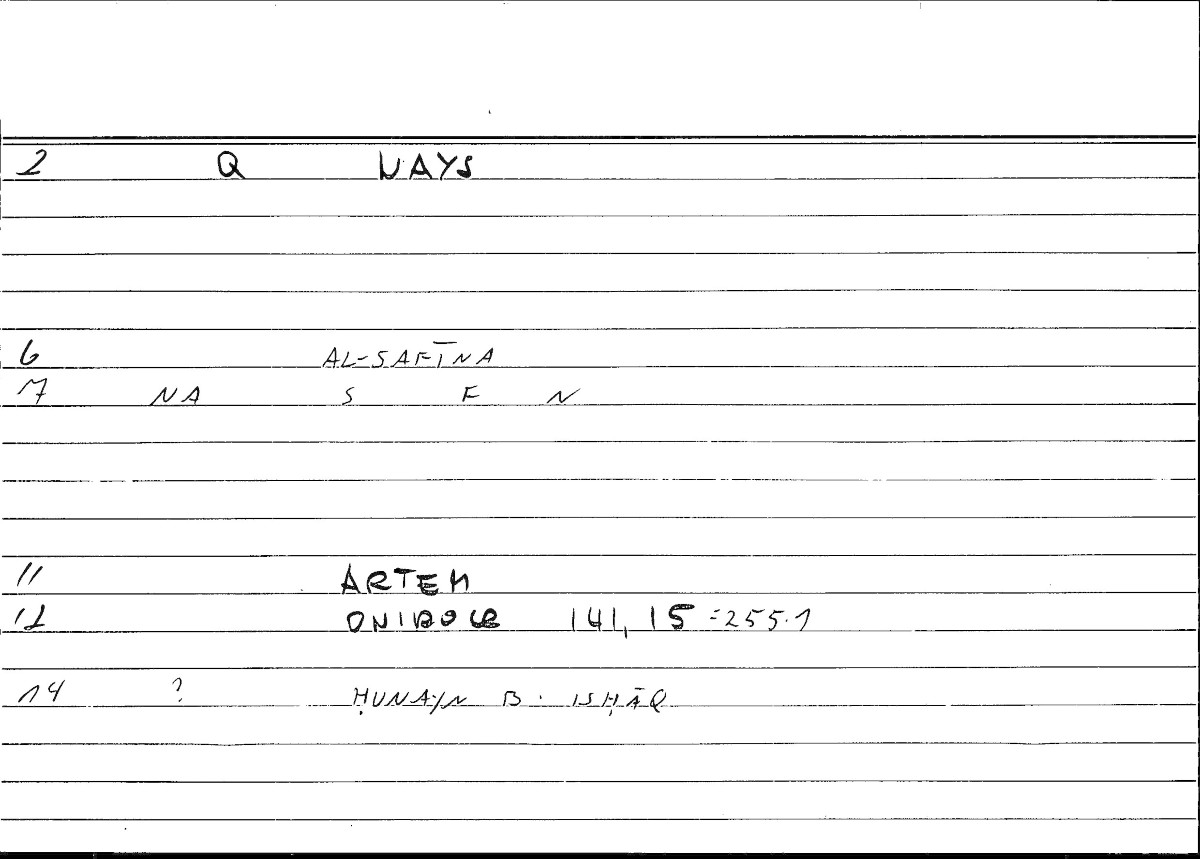 2 Q NAYS
6 AL-SAFĪNA
7 NA S F N
11 ARTEM
12 ONIROCR 141, 15 =255.1
14 ? ḤUNAYN B. ISḤĀQ